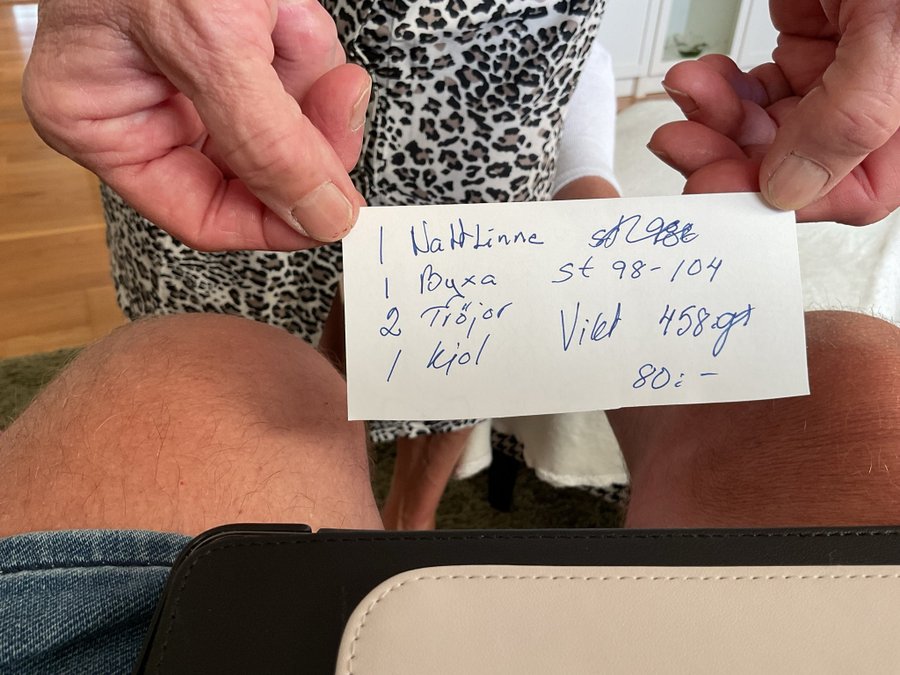 1 Nattlinne
1 Byxa st 98-104
2 Tröjor Vikt 458 gr
1 kjol
80:-